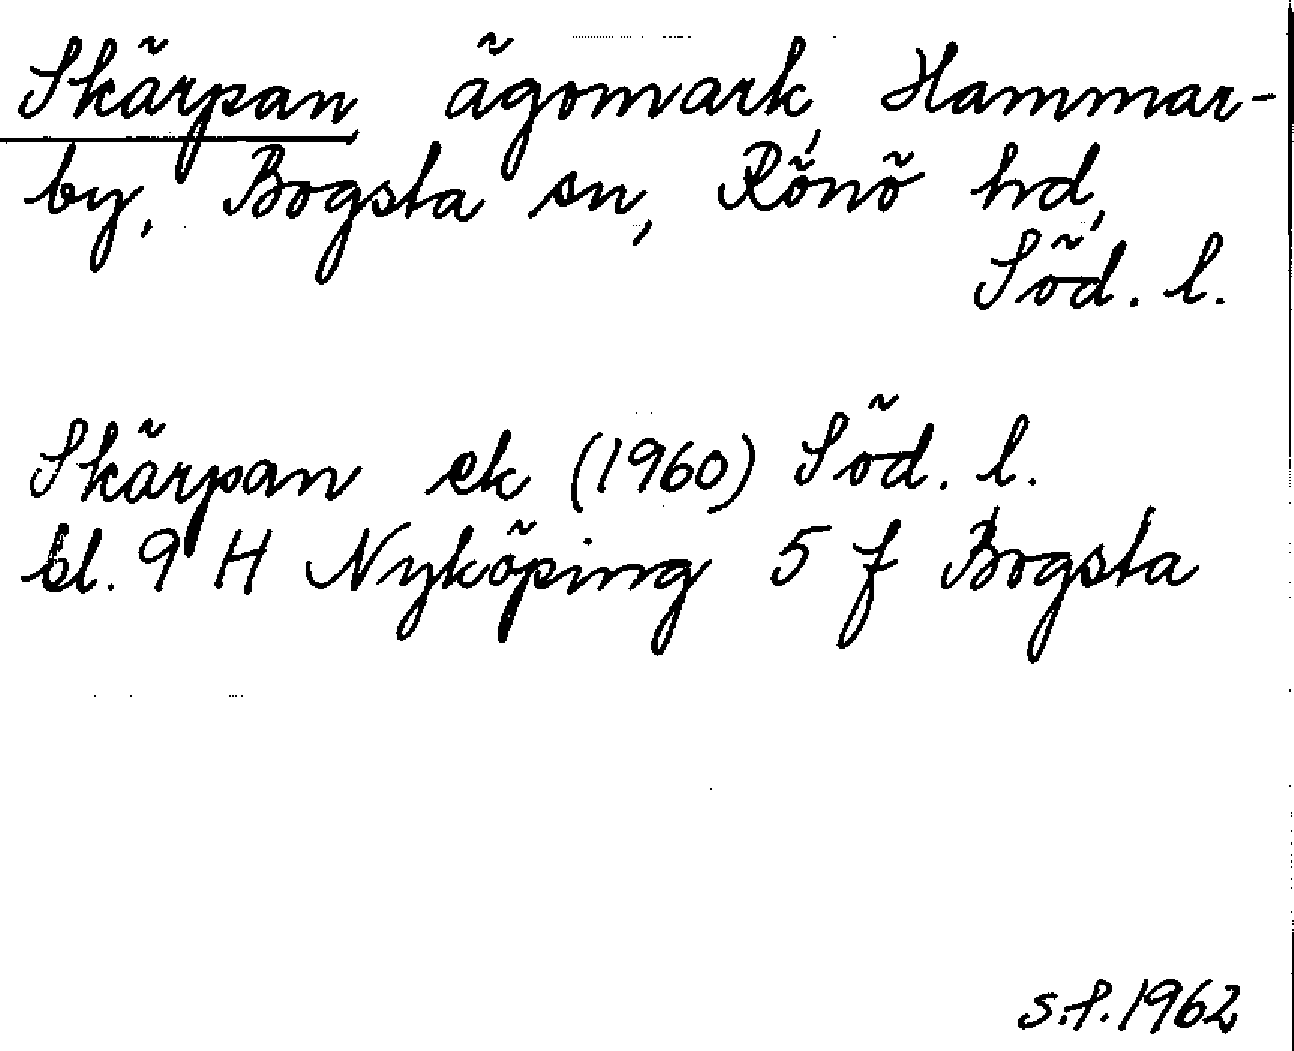 Skärpan ägomark, Hammar-
by, Bogsta sn, Rönö hd,
Söd. l.
Skärpan ek (1960) Söd. l.
bl. 9 H Nyköping 5 f Bogsta
s.f. 1962